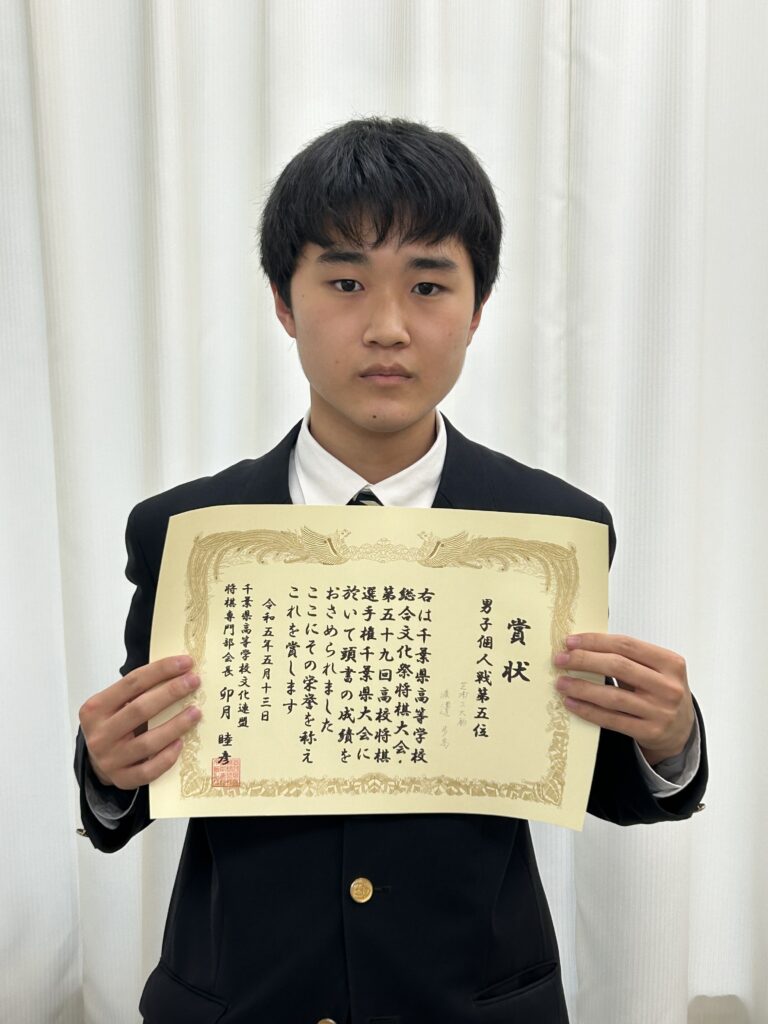 賞状
男子個人戦第五位
右は千葉県高等学校
総合文化祭将棋大会・
第五十九回高校将棋
選手権千葉県大会に
於いて頭書の成績を
おさめられました
ここにその栄誉を称え
これを賞します
令和五年五月十三日
千葉県高等学校文化連盟
将棋専門部会長 卯月 睦彦